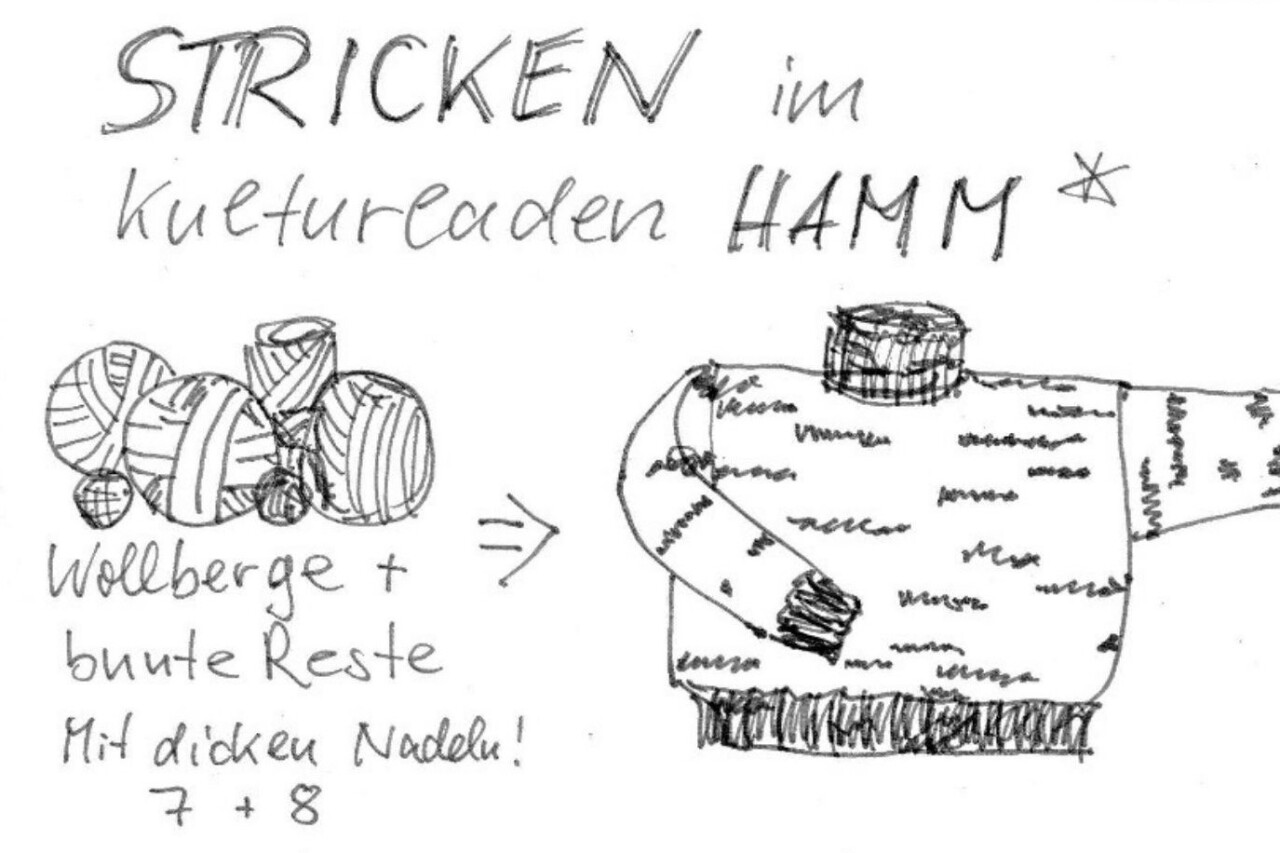 STRICKEN im
Kulturladen HAMM *
Wollberge +
bunte Reste
Mit dicken Nadeln!
7 + 8